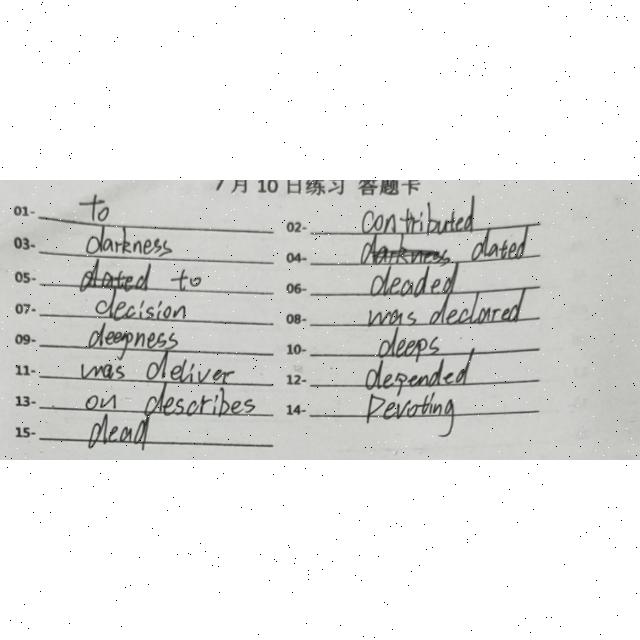 7月10日练习 答题卡
01- to
02- contributed
03- darkness
04- darkness dated
05- dated to
06- deaded
07- decision
08- was declared
09- deepness
10- deeps
11- was deliver
12- depended
13- on describes
14- Devoting
15- dead